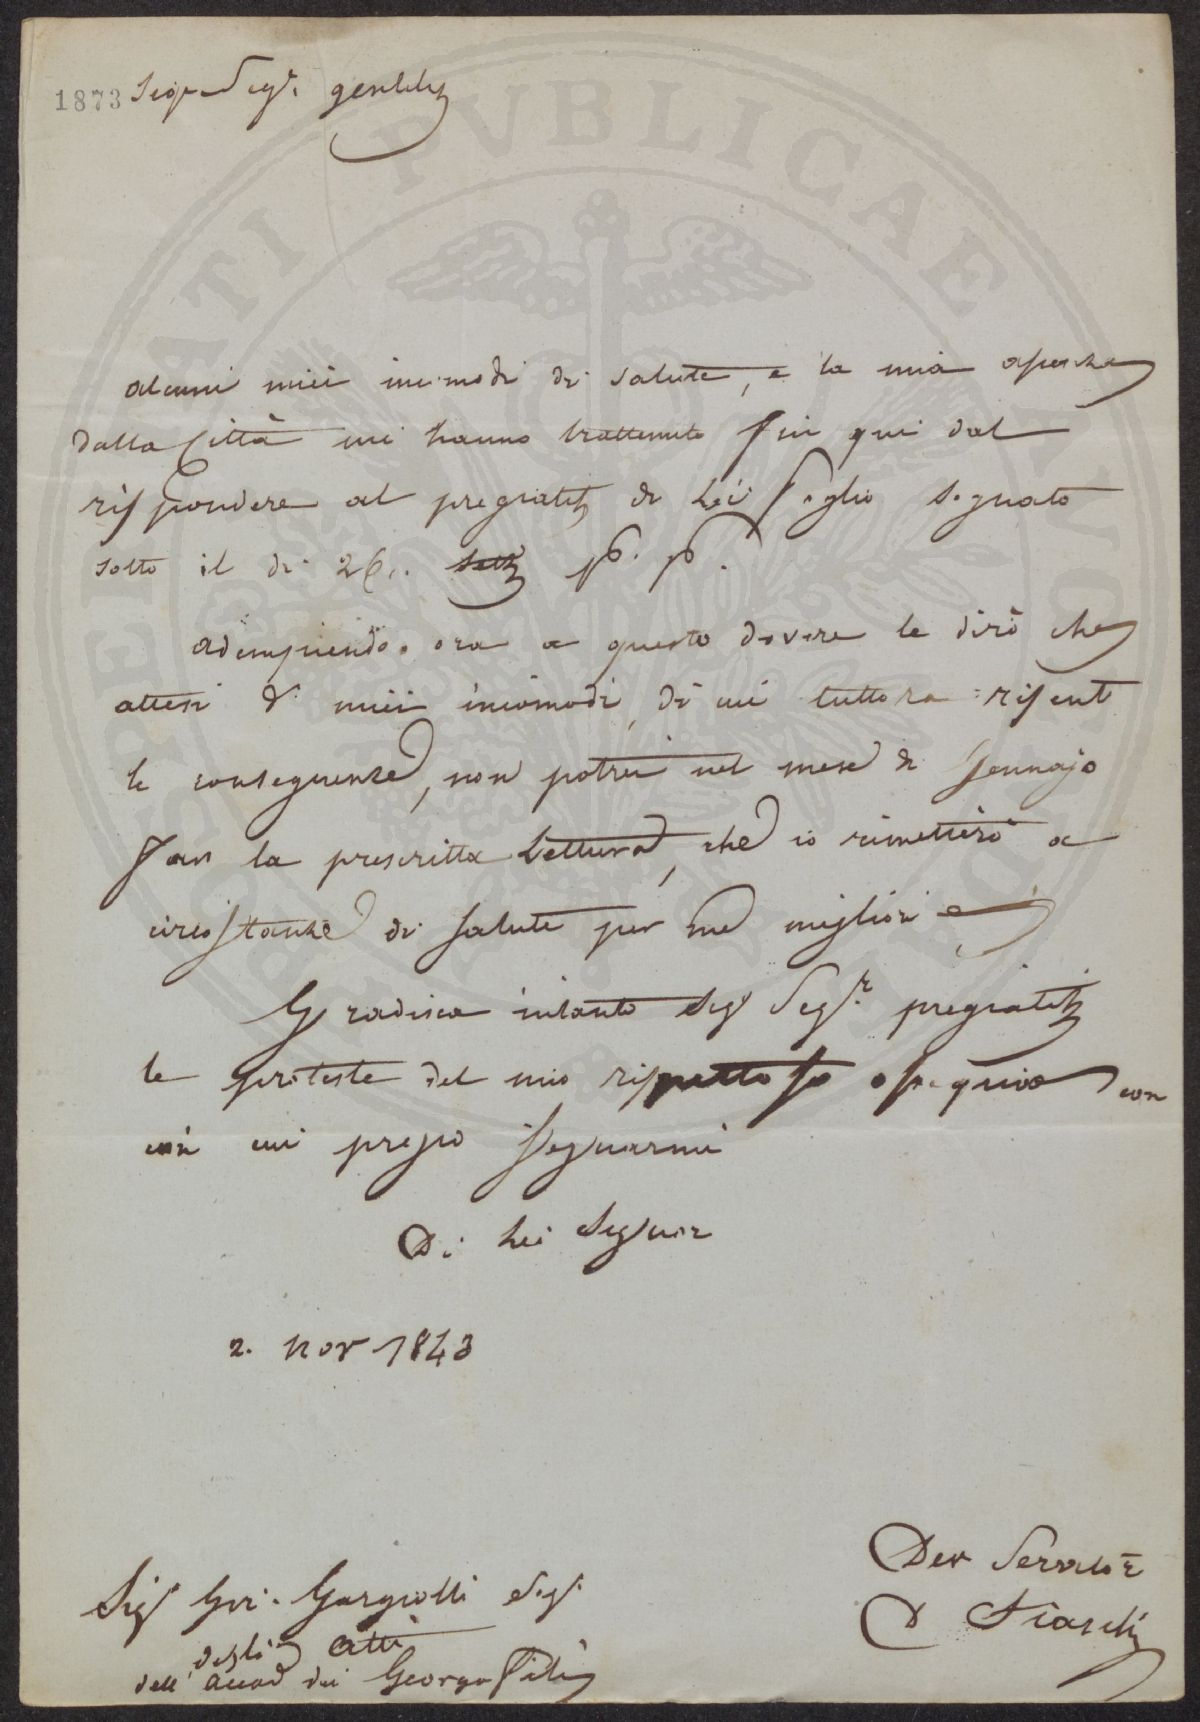 1873
Sigr Segr. gentiliss
alcuni miei incomodi di salute, e la mia assenza
dalla Città mi hanno trattenuto fin qui dal
rispondere al pregiatiss di Lei foglio segnato
sotto il di 26. p. p.
adempiendo ora a questo dovere le dirò che
attesi i miei incomodi, di cui tuttora risent
le conseguenze, non potrei nel mese di Gennajo
far la prescritta Lettura, che io rimetterò a
circostanze di salute per me migliori
Gradisca intanto Sigr Segr. pregiatiss
le proteste del mio rispettoso ossequio con
cui mi pregio segnarmi
Di Lei Signor
2. Nov 1843
Dev Servitore
Sigr Gargiolli Segr.
degli Atti
dell' Accad dei Georgofili